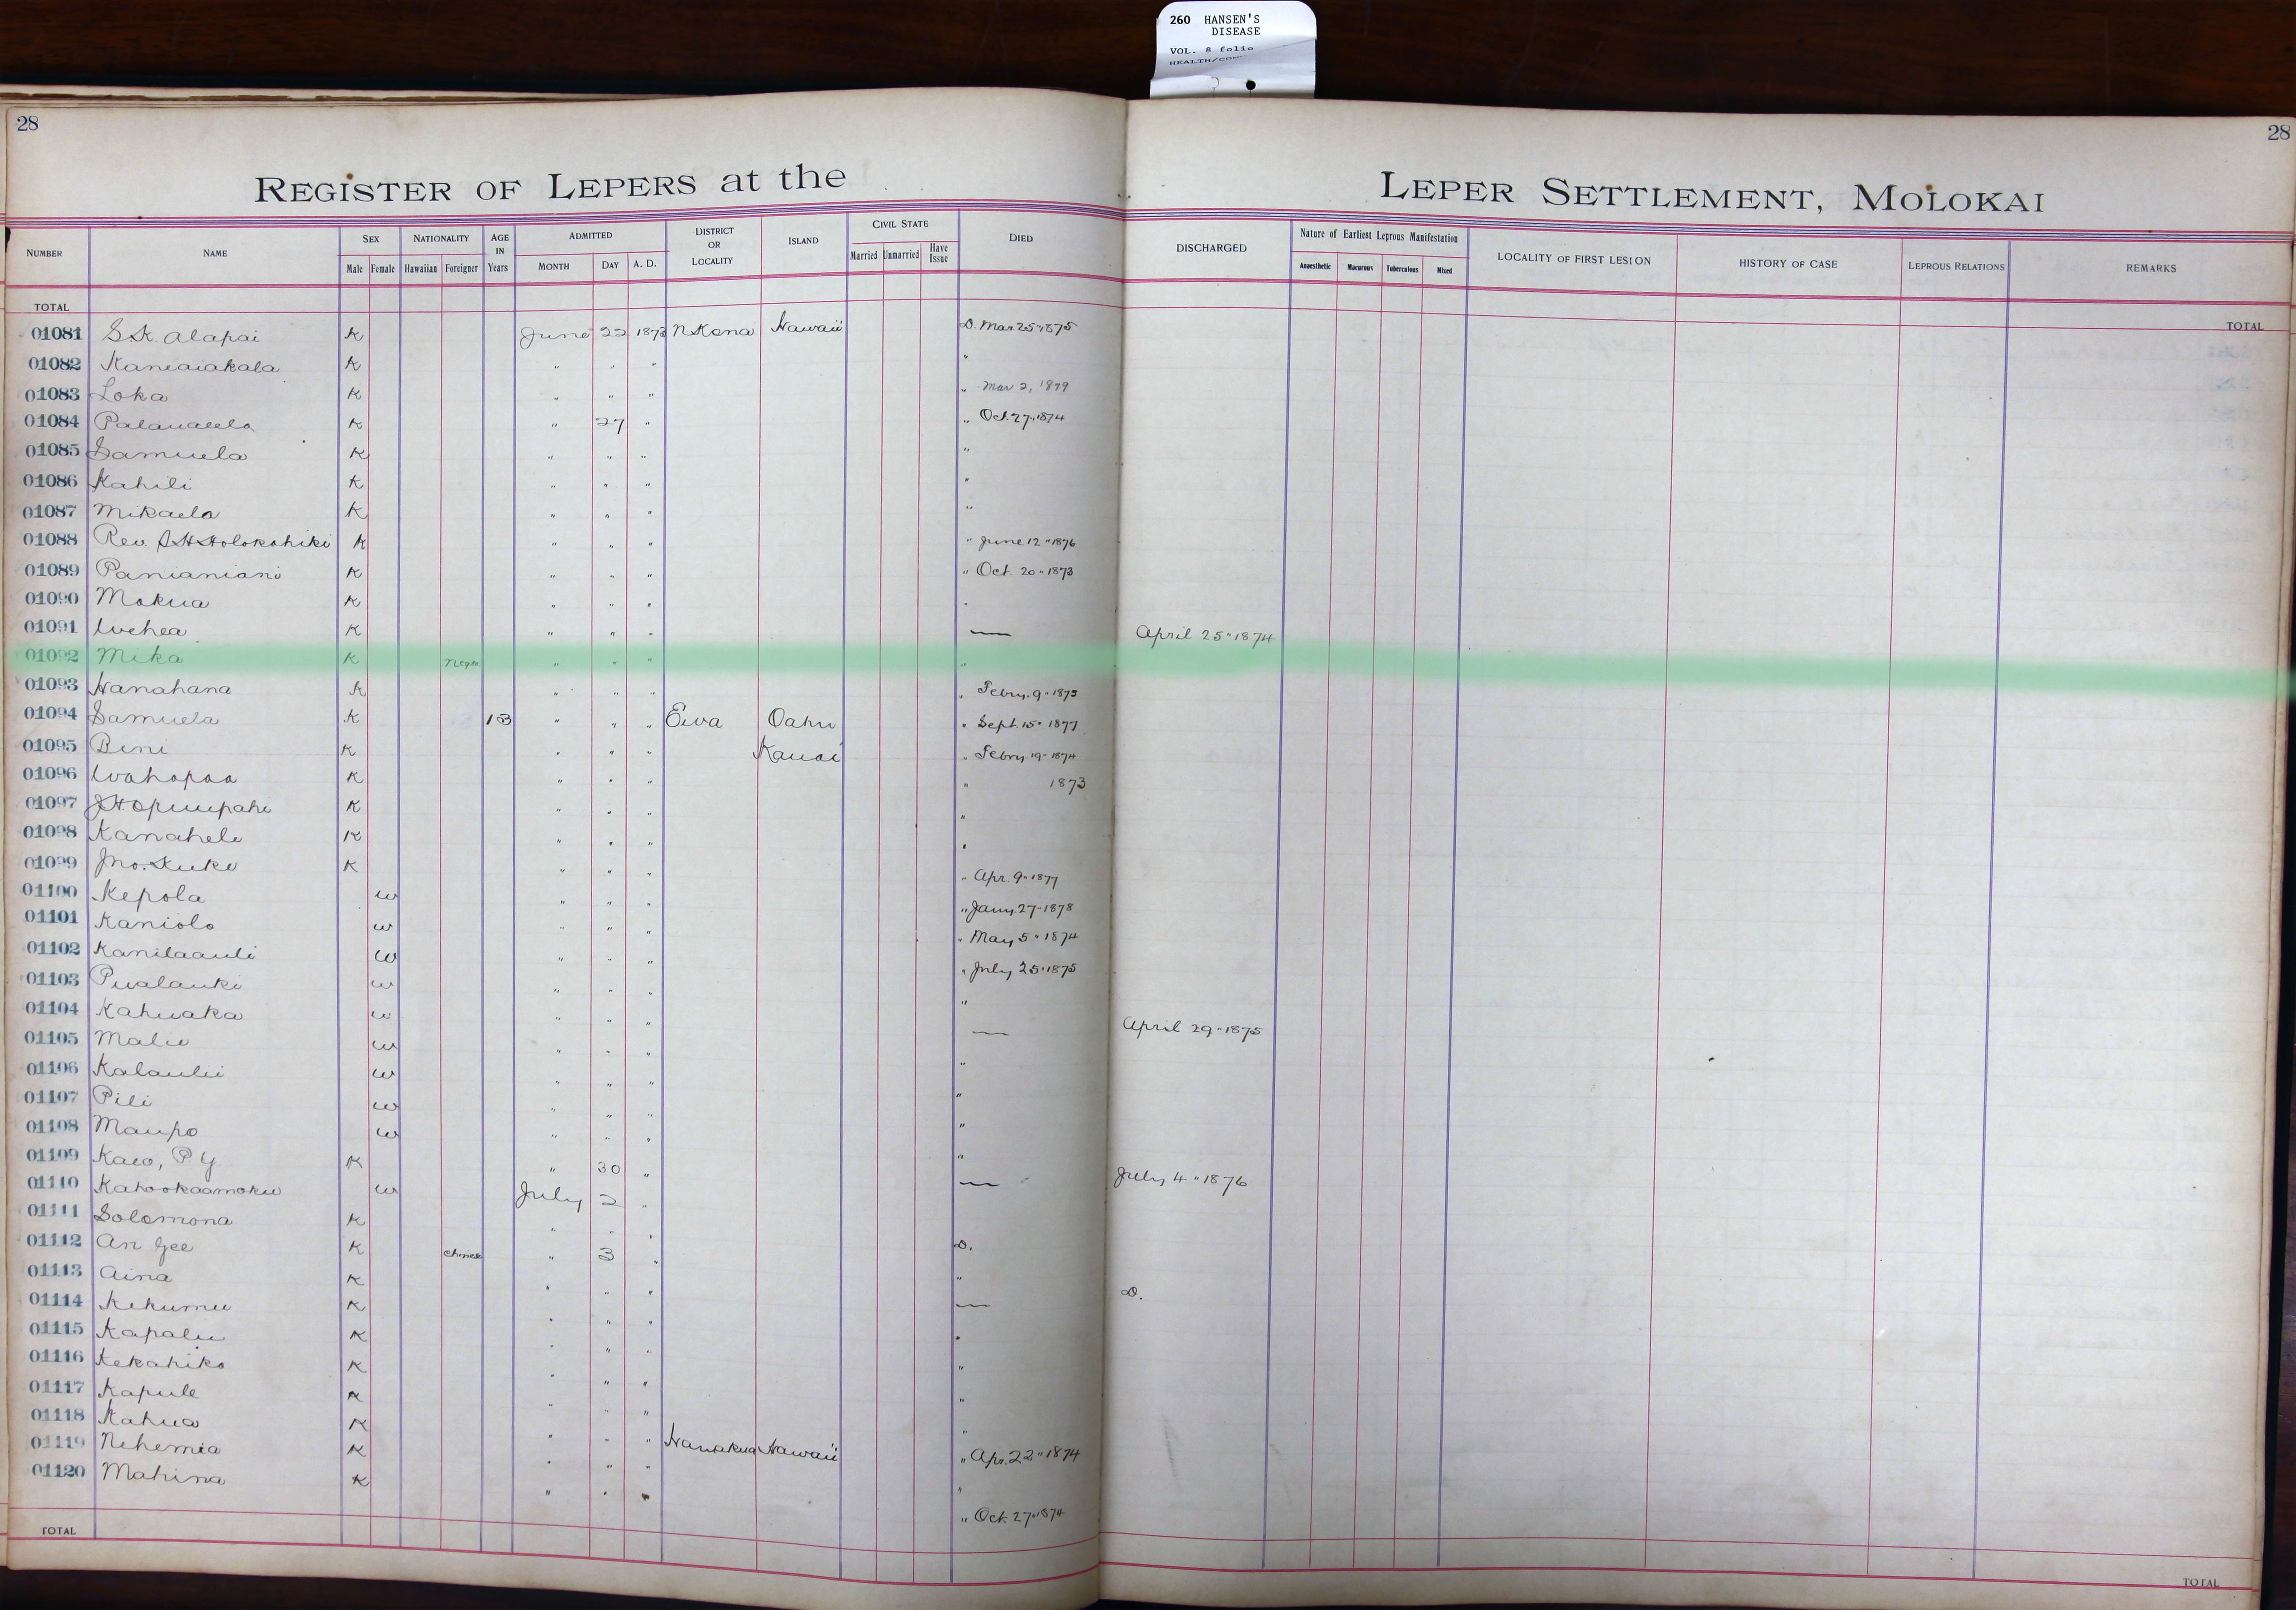 260 HANSEN'S
DISEASE
VOL. 8 folio
28
28
REGISTER OF LEPERS at the LEPER SETTLEMENT, MOLOKAI
NUMBER NAME SEX Male Female NATIONALITY Hawaiian Foreigner AGE IN Years ADMITTED MONTH DAY A. D. DISTRICT OR LOCALITY ISLAND CIVIL STATE Married Unmarried Have Issue DIED DISCHARGED Nature of Earliest Leprous Manifestation Anaesthetic Macurous Tuberculous Mixed LOCALITY OF FIRST LESION HISTORY OF CASE LEPROUS RELATIONS REMARKS
TOTAL TOTAL
01081 S.K. Alapai K June 22 1873 N Kona Hawaii D. Mar. 25 " 1875
01082 Kaneaiakala K " " " "
01083 Loka K " " " " Mar 2, 1879
01084 K " 27 " " Oct. 27 " 1874
01085 Samuela K " " " "
01086 Kahili K " " " "
01087 Mikaela K " " " "
01088 Rev. S H Holokahiki K " " " " June 12 " 1876
01089 Panianiani K " " " " Oct. 20 " 1873
01090 Mokua K " " " "
01091 K " " " — April 25 " 1874
01092 Mika K Negro " " " "
01093 Hanahana K " " " " Febry. 9 " 1875
01094 Samuela K 13 " " " Ewa Oahu " Sept. 15 " 1877
01095 Beni K " " " Kauai " Febry 19 " 1874
01096 Wahapaa K " " " " 1873
01097 J.H. K " " " "
01098 Kanahele K " " " "
01099 Jno. Kuke K " " " " Apr. 9 " 1877
01100 Kepola W " " " " Jany. 27 " 1878
01101 Kaniolo W " " " " May 5 " 1874
01102 Kanilaauli W " " " " July 25 " 1875
01103 Pualauki W " " " "
01104 Kahuaka W " " " — April 29 " 1875
01105 Malie W " " " "
01106 Kalaulii W " " " "
01107 Pili W " " " "
01108 Maupo W " " " "
01109 Kaeo, P Y K " 30 " — July 4 " 1876
01110 Kahookaamoku W July 2 "
01111 Solomona K " " " D.
01112 An Gee K Chinese " 3 " "
01113 Aina K " " " — D.
01114 Kekumu K " " " "
01115 Kapalu K " " " "
01116 Kekahiko K " " " "
01117 Kapule K " " " "
01118 Kahua K " " "
01119 Nehemia K " " " Hamakua Hawaii " Apr. 22 " 1874
01120 Mahina K " " " "
" Oct. 27 " 1874
TOTAL TOTAL